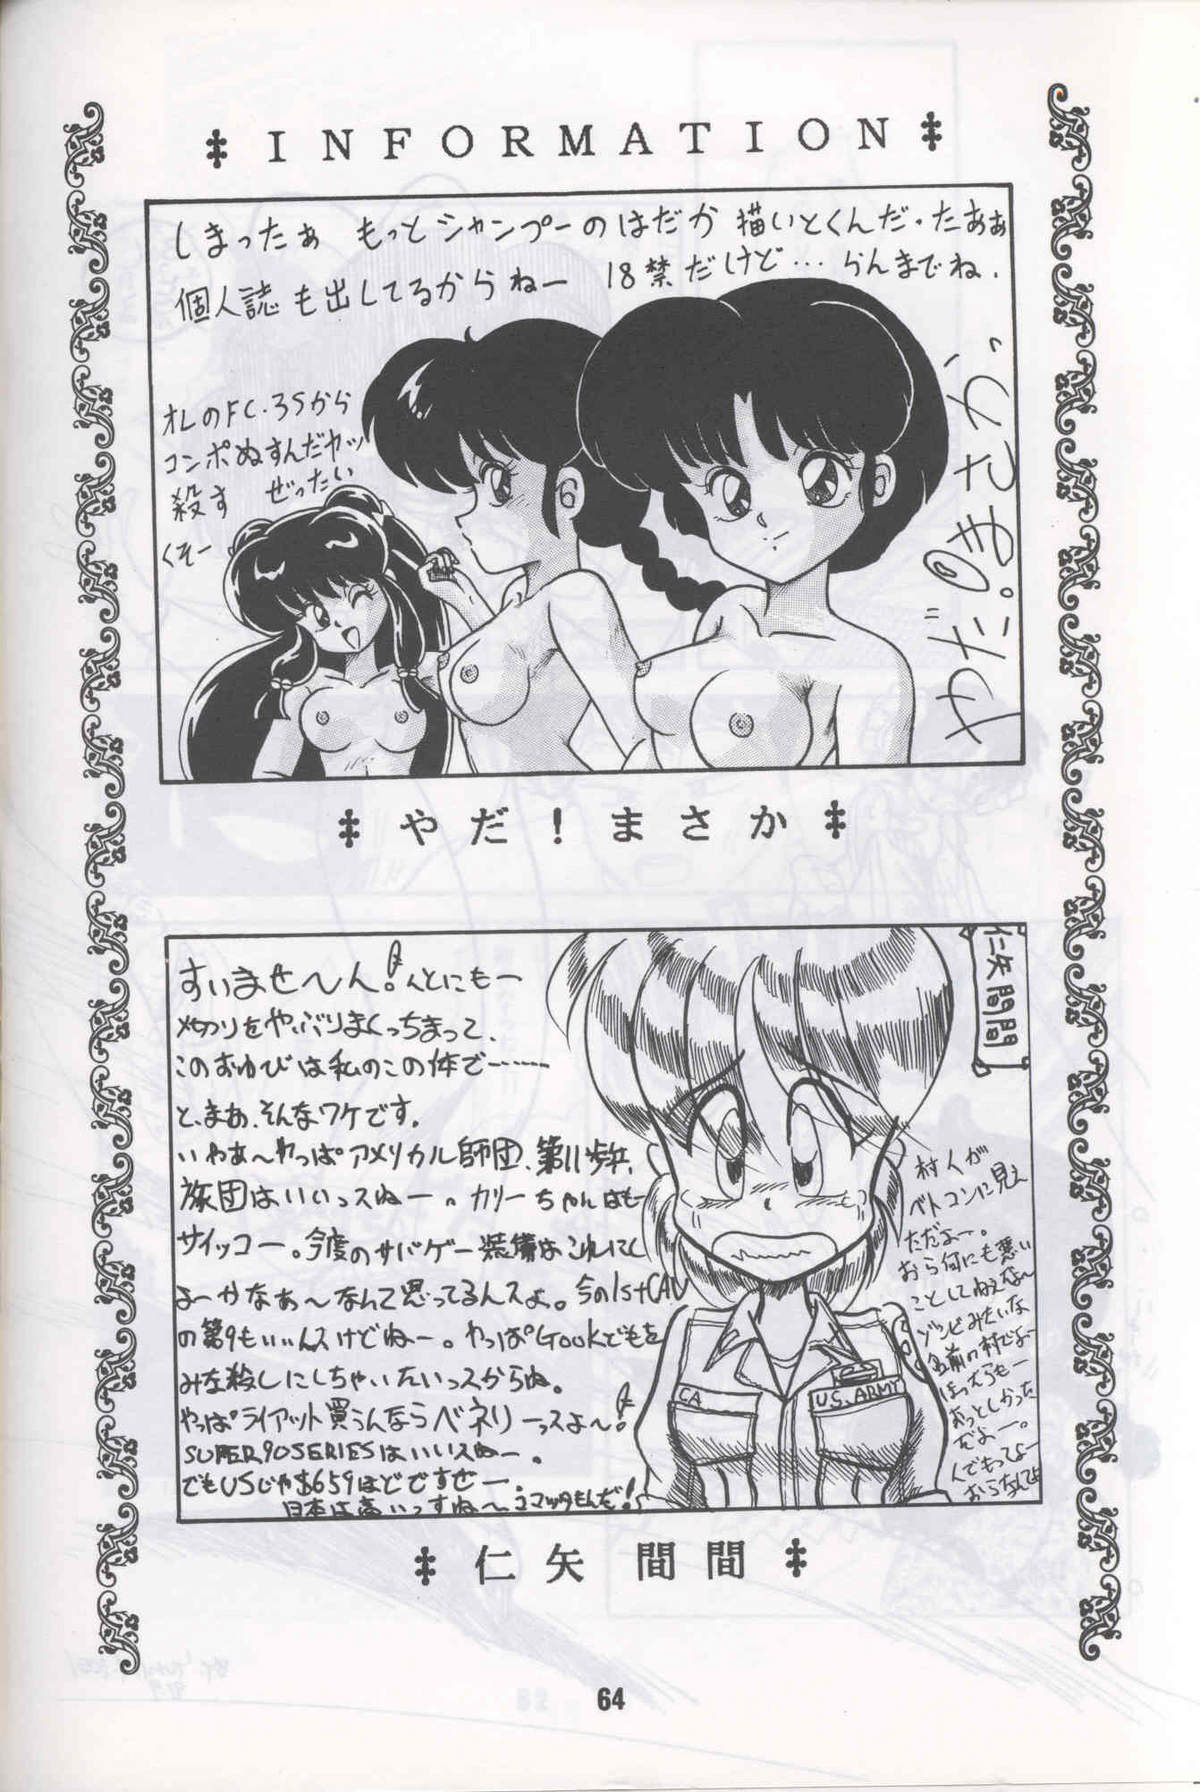 INFORMATION
しまったぁ もっとシャンプーのはだか描いとくんだ・たあぁ
個人誌も出してるからねー 18禁だけど…らんまでね.
オレのFC・3Sから
コンポぬすんだヤツ
殺す ぜったい
くそー
やだ！まさか
すいませ〜ん! んとにもー
〆切りをやぶりまくっちまって、
このおわびは私のこの体で………
と、まあ、そんなワケです。
いやあ〜やっぱアメリカル師団、第11歩兵
旅団はいいっスねー。カリーちゃんはも
サイッコー。今度のサバゲー装備はこれにし
よーかなぁ〜なんて思ってるんスよ。今の1stCAV
の第9もいいんスけどねー。やっぱGookどもを
みな殺しにしちゃいたいっスからね。
やっぱライアット買うんならベネリーっスよ〜!
SUPER90SERIESはいいスねー。
でもUSじゃ$659ほどですぜー
日本は高いっすねー
仁矢間間
村人が
ベトコンに見え
ただよー。
おら何にも悪い
ことしてねえなー
ゾンビみたいな
名前の村でよー
おっとしかった
だよー。
んでもってよー
CA
U.S. ARMY
仁矢間間
64